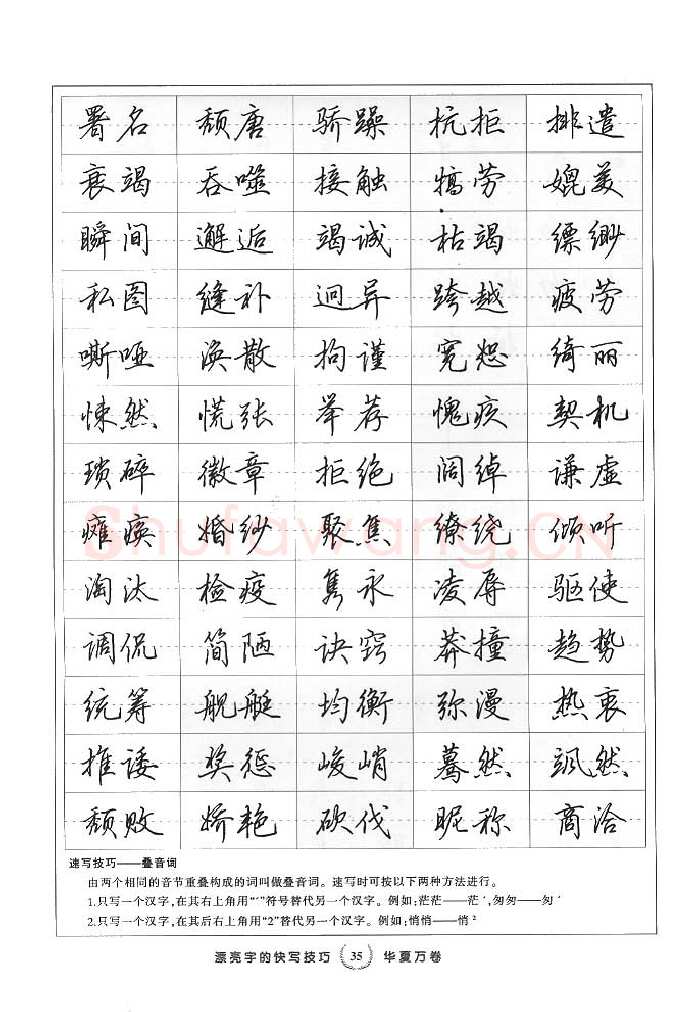 署名 颓唐 骄躁 抗拒 排遣
衰竭 吞噬 接触 犒劳 媲美
瞬间 邂逅 竭诚 枯竭 缥缈
私图 缝补 迥异 跨越 疲劳
嘶哑 涣散 拘谨 宽恕 绮丽
悚然 慌张 举荐 愧疚 契机
琐碎 徽章 拒绝 阔绰 谦虚
瘫痪 婚纱 聚焦 缭绕 倾听
淘汰 检疫 隽永 凌辱 驱使
调侃 简陋 诀窍 莽撞 趋势
统筹 舰艇 均衡 弥漫 热衷
推诿 奖惩 峻峭 蓦然 飒然
颓败 娇艳 砍伐 昵称 商洽
Shufawang.CN
速写技巧——叠音词
由两个相同的音节重叠构成的词叫做叠音词。速写时可按以下两种方法进行。
1.只写一个汉字,在其右上角用“ˊ”符号替代另一个汉字。例如:茫茫——茫ˊ,匆匆——匆ˊ
2.只写一个汉字,在其后右上角用“2”替代另一个汉字。例如:悄悄——悄²
漂亮字的快写技巧 35 华夏万卷